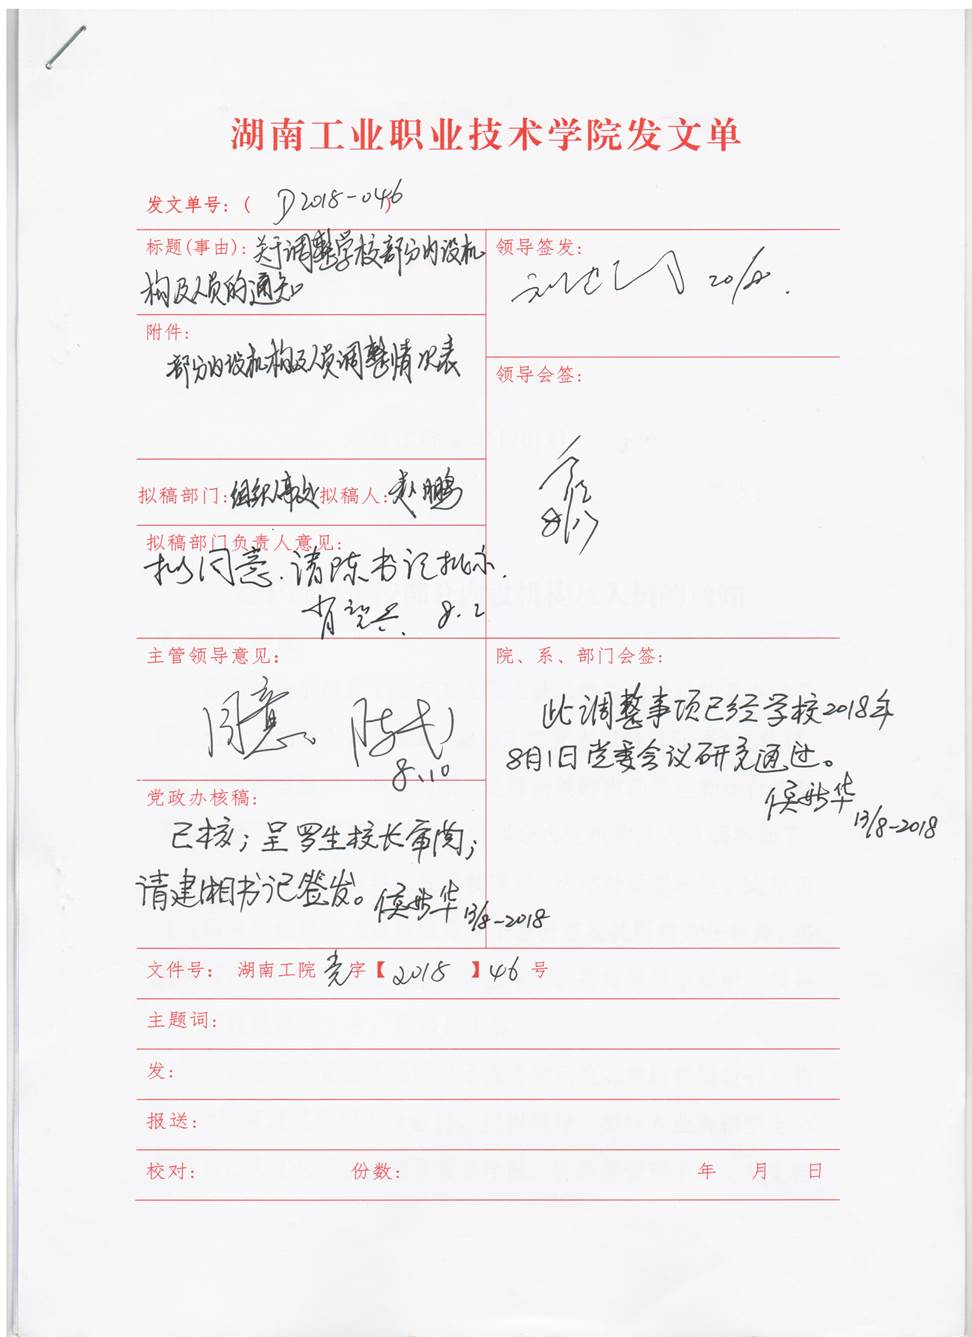 湖南工业职业技术学院发文单
发文单号：( D2018-046 )
标题(事由)：关于调整学校部分内设机
构及人员的通知
领导签发：
20/8.
附件：
部分内设机构及人员调整情况表
领导会签：
拟稿部门：组织人事处 拟稿人：赵鹏
拟稿部门负责人意见：
拟同意.请陈书记批示.
8.2
主管领导意见：
同意。
8.10
院、系、部门会签：
此调整事项已经学校2018年
8月1日党委会议研究通过。
13/8-2018
党政办核稿：
已核；呈罗生校长审阅；
请建湘书记签发。
13/8-2018
文件号： 湖南工院党字【2018】46号
主题词：
发：
报送：
校对： 份数： 年 月 日